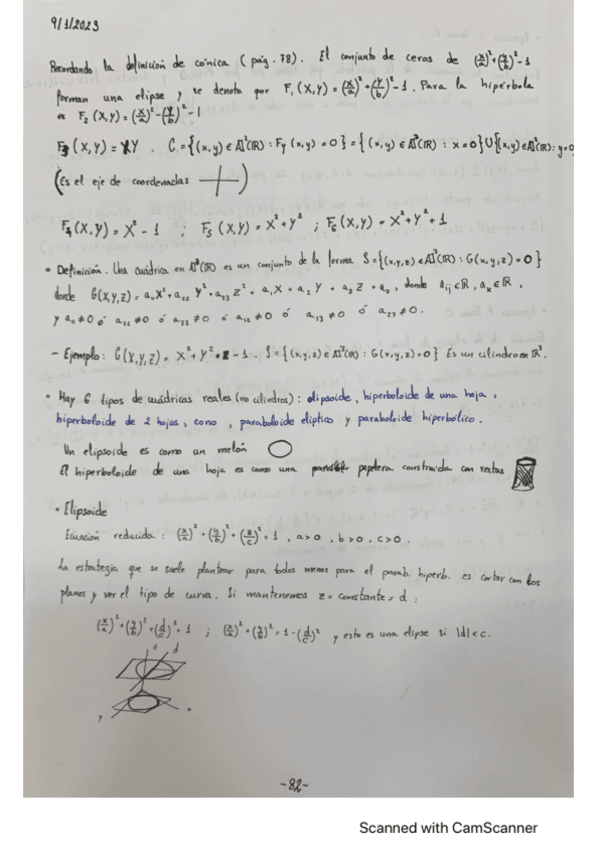 9/1/2023
Recordando la definición de cónica (pág. 78). El conjunto de ceros de (x/a)²+(y/b)²-1
forman una elipse y se denota por F₁(X,Y)=(x/a)²+(y/b)²-1. Para la hipérbola
es F₂(X,Y)=(x/a)²-(y/b)²-1
F₃(X,Y)=XY. C={(x,y)∈A²(ℝ): F₃(x,y)=0}={(x,y)∈A²(ℝ): x=0}∪{(x,y)∈A²(ℝ): y=0
(Es el eje de coordenadas )
F₄(X,Y)=X²-1 ; F₅(X,Y)=X²+Y² ; F₆(X,Y)=X²+Y²+1
• Definición. Una cuádrica en A³(ℝ) es un conjunto de la forma S={(x,y,z)∈A³(ℝ): G(x,y,z)=0}
donde G(X,Y,Z)= X²+a₂₂ Y²+ Z²+ a₁X+a₂Y+a₃Z+a₀, donde aᵢⱼ∈ℝ, aₖ∈ℝ,
y ≠0 ó a₂₂≠0 ó ≠0 ó a₁₂≠0 ó a₁₃≠0 ó a₂₃≠0.
- Ejemplo: G(X,Y,Z)= X²+Y²-1. S={(x,y,z)∈A³(ℝ): G(x,y,z)=0} Es un cilindro en ℝ³.
• Hay 6 tipos de cuádricas reales (no cilindros): elipsoide, hiperboloide de una hoja,
hiperboloide de 2 hojas, cono, paraboloide elíptico y paraboloide hiperbólico.
Un elipsoide es como un melón
El hiperboloide de una hoja es como una papelera construida con rectas
• Elipsoide
Ecuación reducida: (x/a)²+(y/b)²+(z/c)²=1, a>0, b>0, c>0.
La estrategia que se suele plantear para todos menos para el parab. hiperb. es cortar con los
planos y ver el tipo de curva. Si mantenemos z=constante=d:
(x/a)²+(y/b)²+(d/c)²=1 ; (x/a)²+(y/b)²=1-(d/c)² y esto es una elipse si |d|<c.
z d
y x
-82-
Scanned with CamScanner